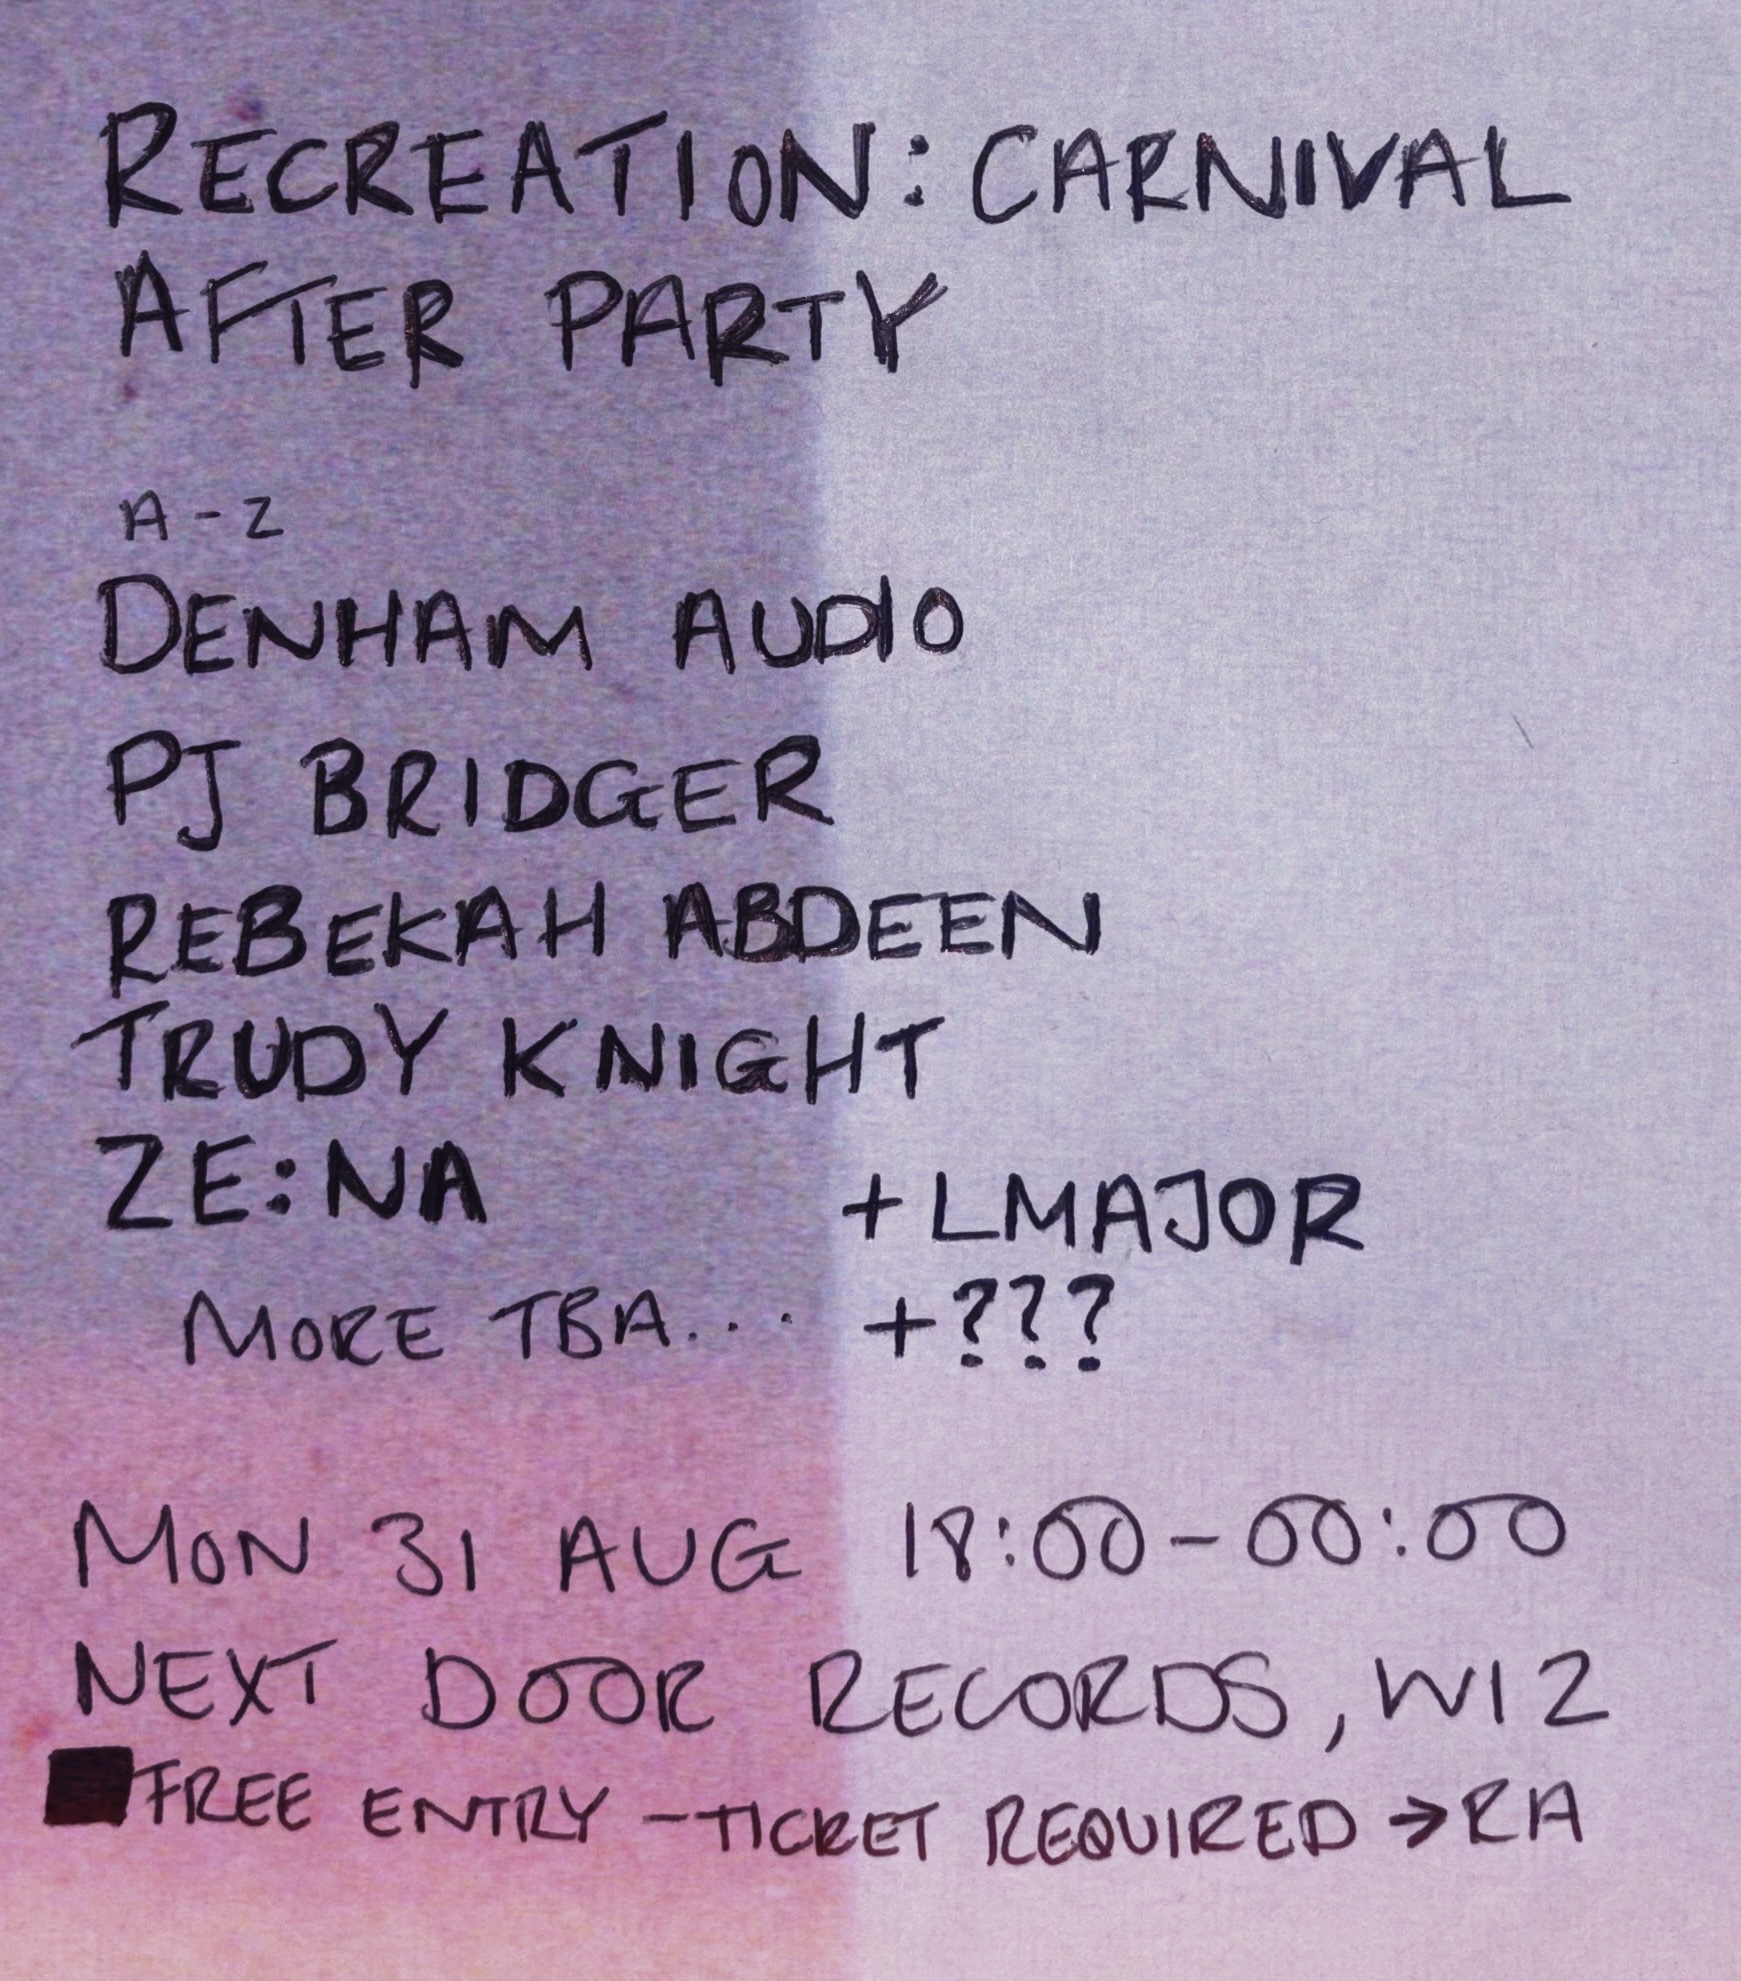 RECREATION: CARNIVAL
AFTER PARTY
A-Z
DENHAM AUDIO
PJ BRIDGER
REBEKAH ABDEEN
TRUDY KNIGHT
ZE:NA
+ LMAJOR
MORE TBA... + ???
MON 31 AUG 18:00-00:00
NEXT DOOR RECORDS, W12
FREE ENTRY - TICKET REQUIRED → RA